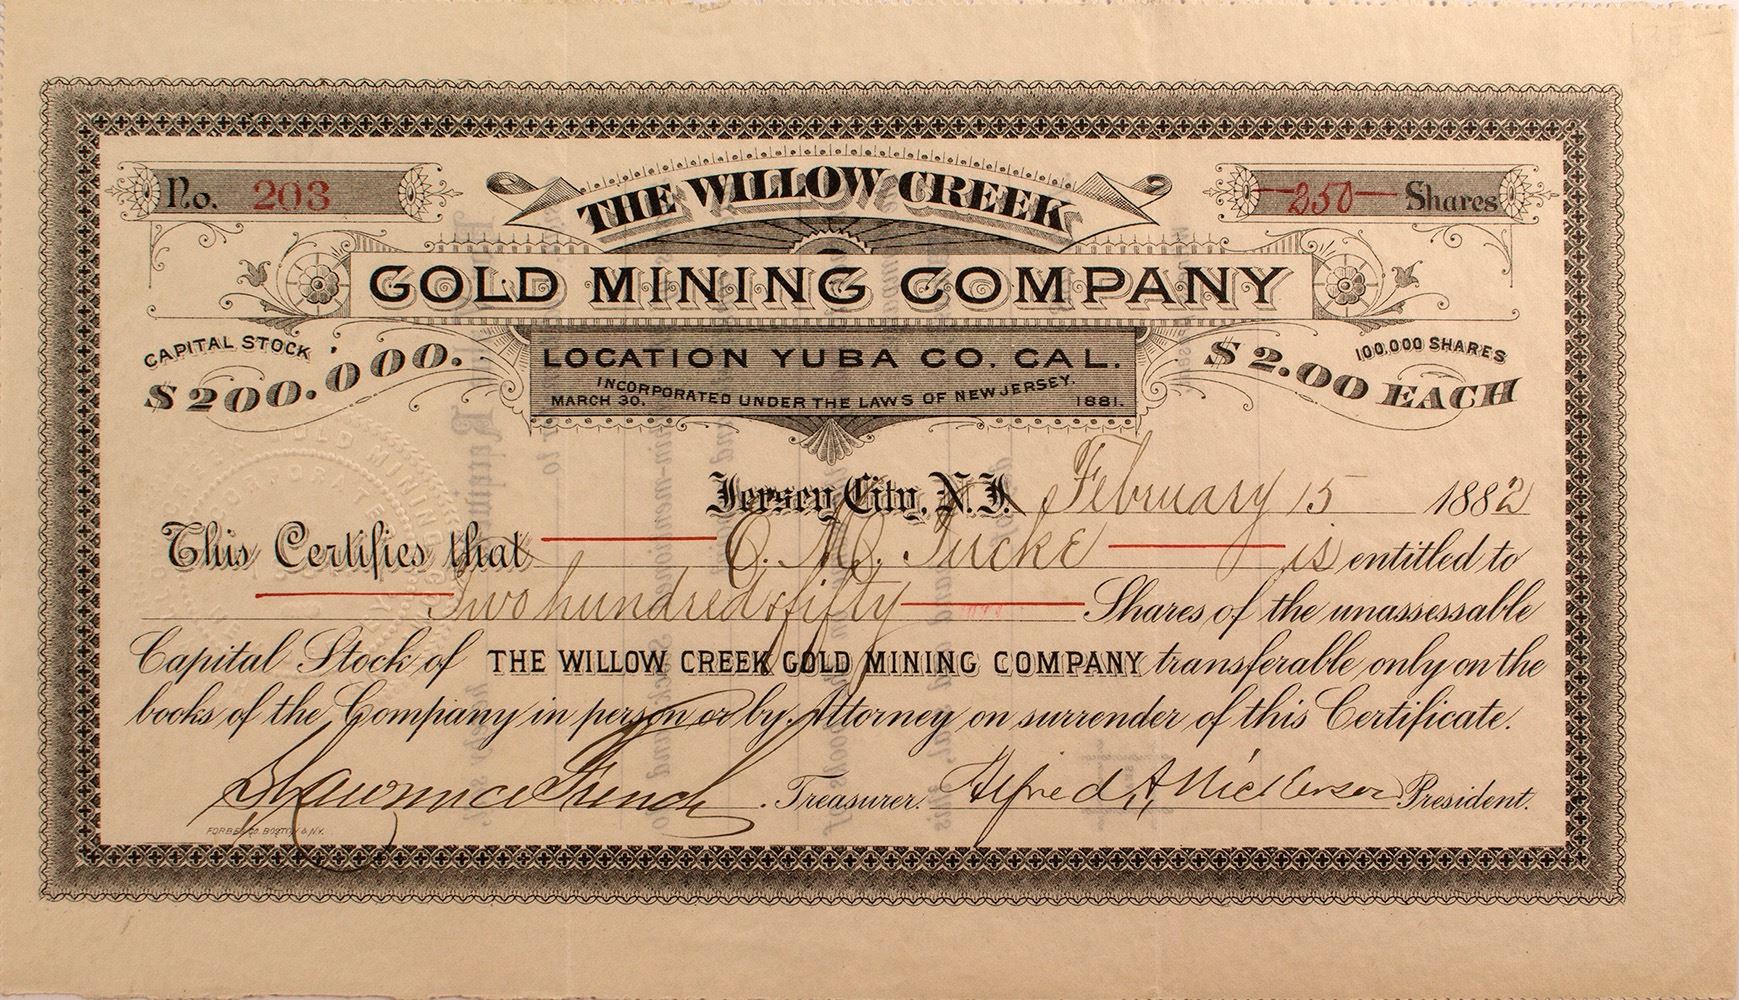 No. 203
THE WILLOW CREEK
250 Shares
GOLD MINING COMPANY
CAPITAL STOCK
$200.000.
LOCATION YUBA CO. CAL.
INCORPORATED UNDER THE LAWS OF NEW JERSEY.
MARCH 30. 1881.
100,000 SHARES
$2.00 EACH
Jersey City, N.J. February 15 1882
This Certifies that O. M. Tucke is entitled to
Two hundred & fifty Shares of the unassessable
Capital Stock of THE WILLOW CREEK GOLD MINING COMPANY transferable only on the
books of the Company in person or by Attorney on surrender of this Certificate.
French Treasurer. Alfred A. Nickerson President.
FORBES CO. BOSTON & N.Y.